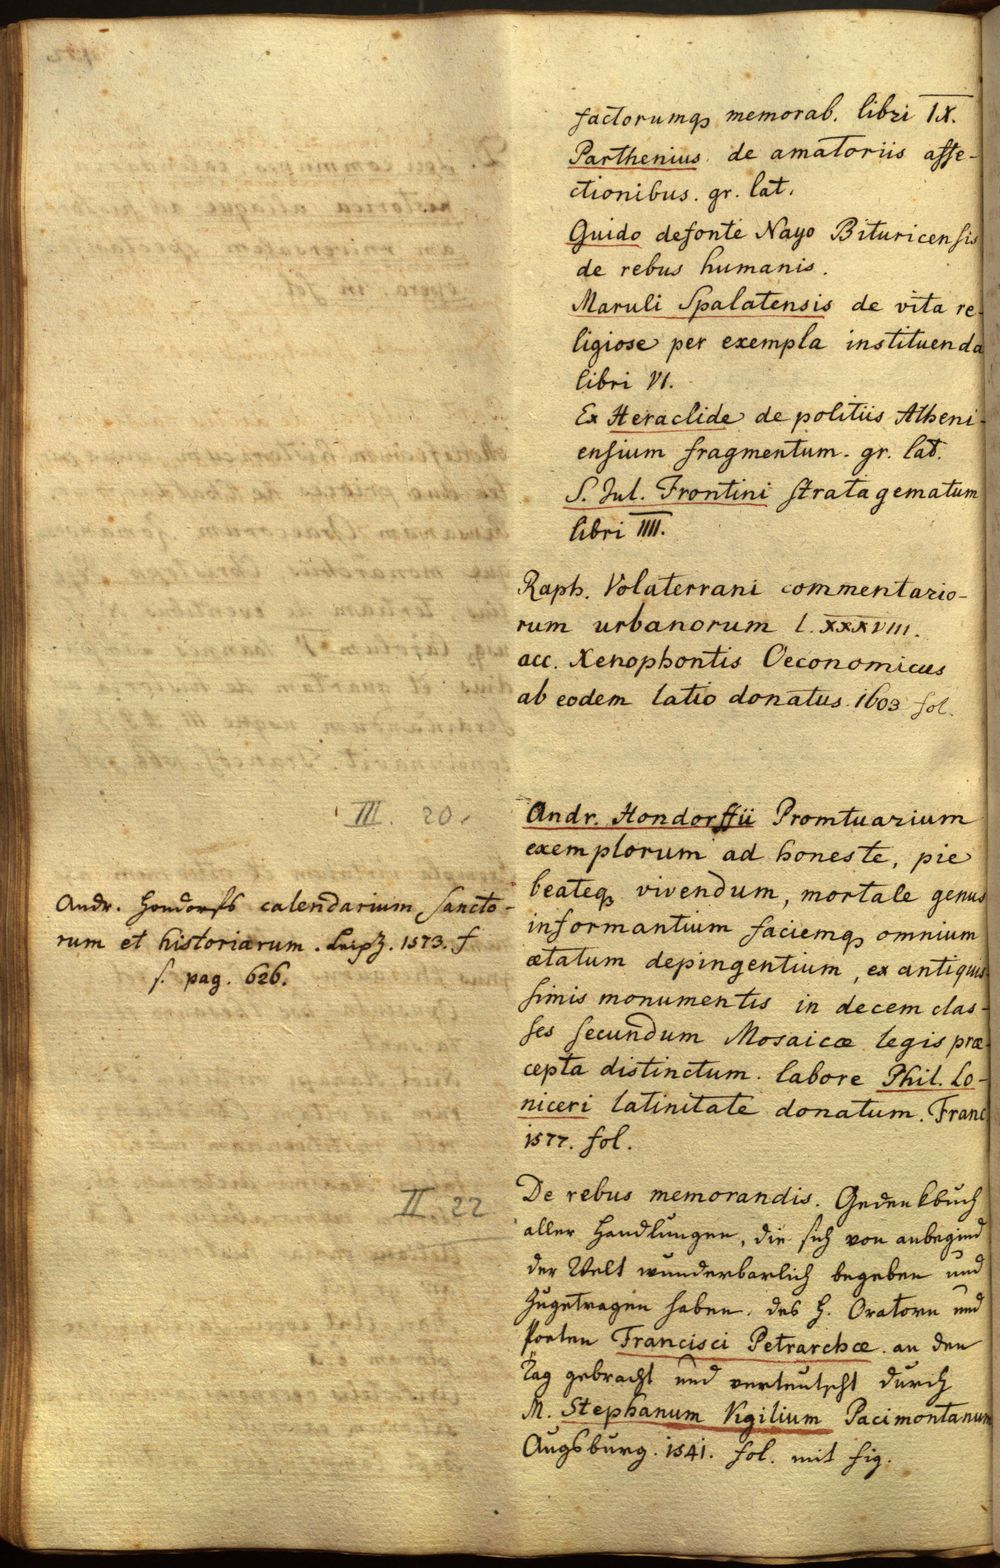 factorumq memorab. libri IX.
Parthenius de amatoriis affe-
ctionibus. gr. lat.
Guido defonte Nayo Bituricensis
de rebus humanis.
Maruli Spalatensis de vita re-
ligiose per exempla instituenda
libri VI.
Ex Heraclide de politiis Atheni-
ensium fragmentum. gr. lat.
S. Jul. Frontini stratagematum
libri IIII.
Raph. Volaterrani commentario-
rum urbanorum l. XXXVIII.
acc. Xenophontis Oeconomicus
ab eodem latio donatus. 1603 fol.
III. 20.
Andr. Hondorffii Promtuarium
exemplorum ad honeste, pie
beateq vivendum, mortale genus
informantium faciemq omnium
ætatum depingentium, ex antiquis
simis monumentis in decem clas-
ses secundum Mosaicæ legis præ-
cepta distinctum. labore Phil. Lo-
niceri latinitate donatum. Franc
1577. fol.
Andr. Hondorffs calendarium Sancto-
rum et historiarum. Leipz. 1573. f
s. pag. 626.
II 22
De rebus memorandis. Gedenkbuch
aller Handlungen, die sich von anbegind
der Welt wunderbarlich begeben und
zugetragen haben. des H. Oratorn und
Poeten Francisci Petrarchæ. an den
Tag gebracht und verteutscht durch
M. Stephanum Vigilium Pacimontanum
Augsburg. 1541. fol. mit fig.